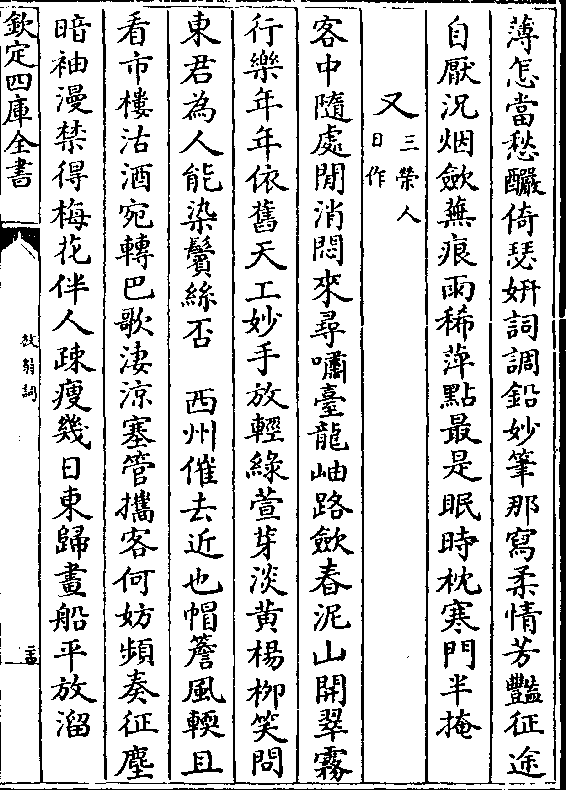 薄怎當愁釅倚瑟妍詞調鉛妙筆那寫柔情芳豔征途
自厭況烟斂蕪痕雨稀萍點最是眠時枕寒門半掩
又三榮人
日作
客中隨處閒消悶來尋嘯臺龍岫路斂春泥山開翠霧
行樂年年依舊天工妙手放輕綠萱芽淡黄楊栁笑問
東君為人能染鬢絲否　西州催去近也帽簷風輭且
看市樓沽酒宛轉巴歌淒涼塞管攜客何妨頻奏征塵
暗袖漫禁得梅花伴人疎瘦幾日東歸畫船平放溜
欽定四庫全書
放翁詞